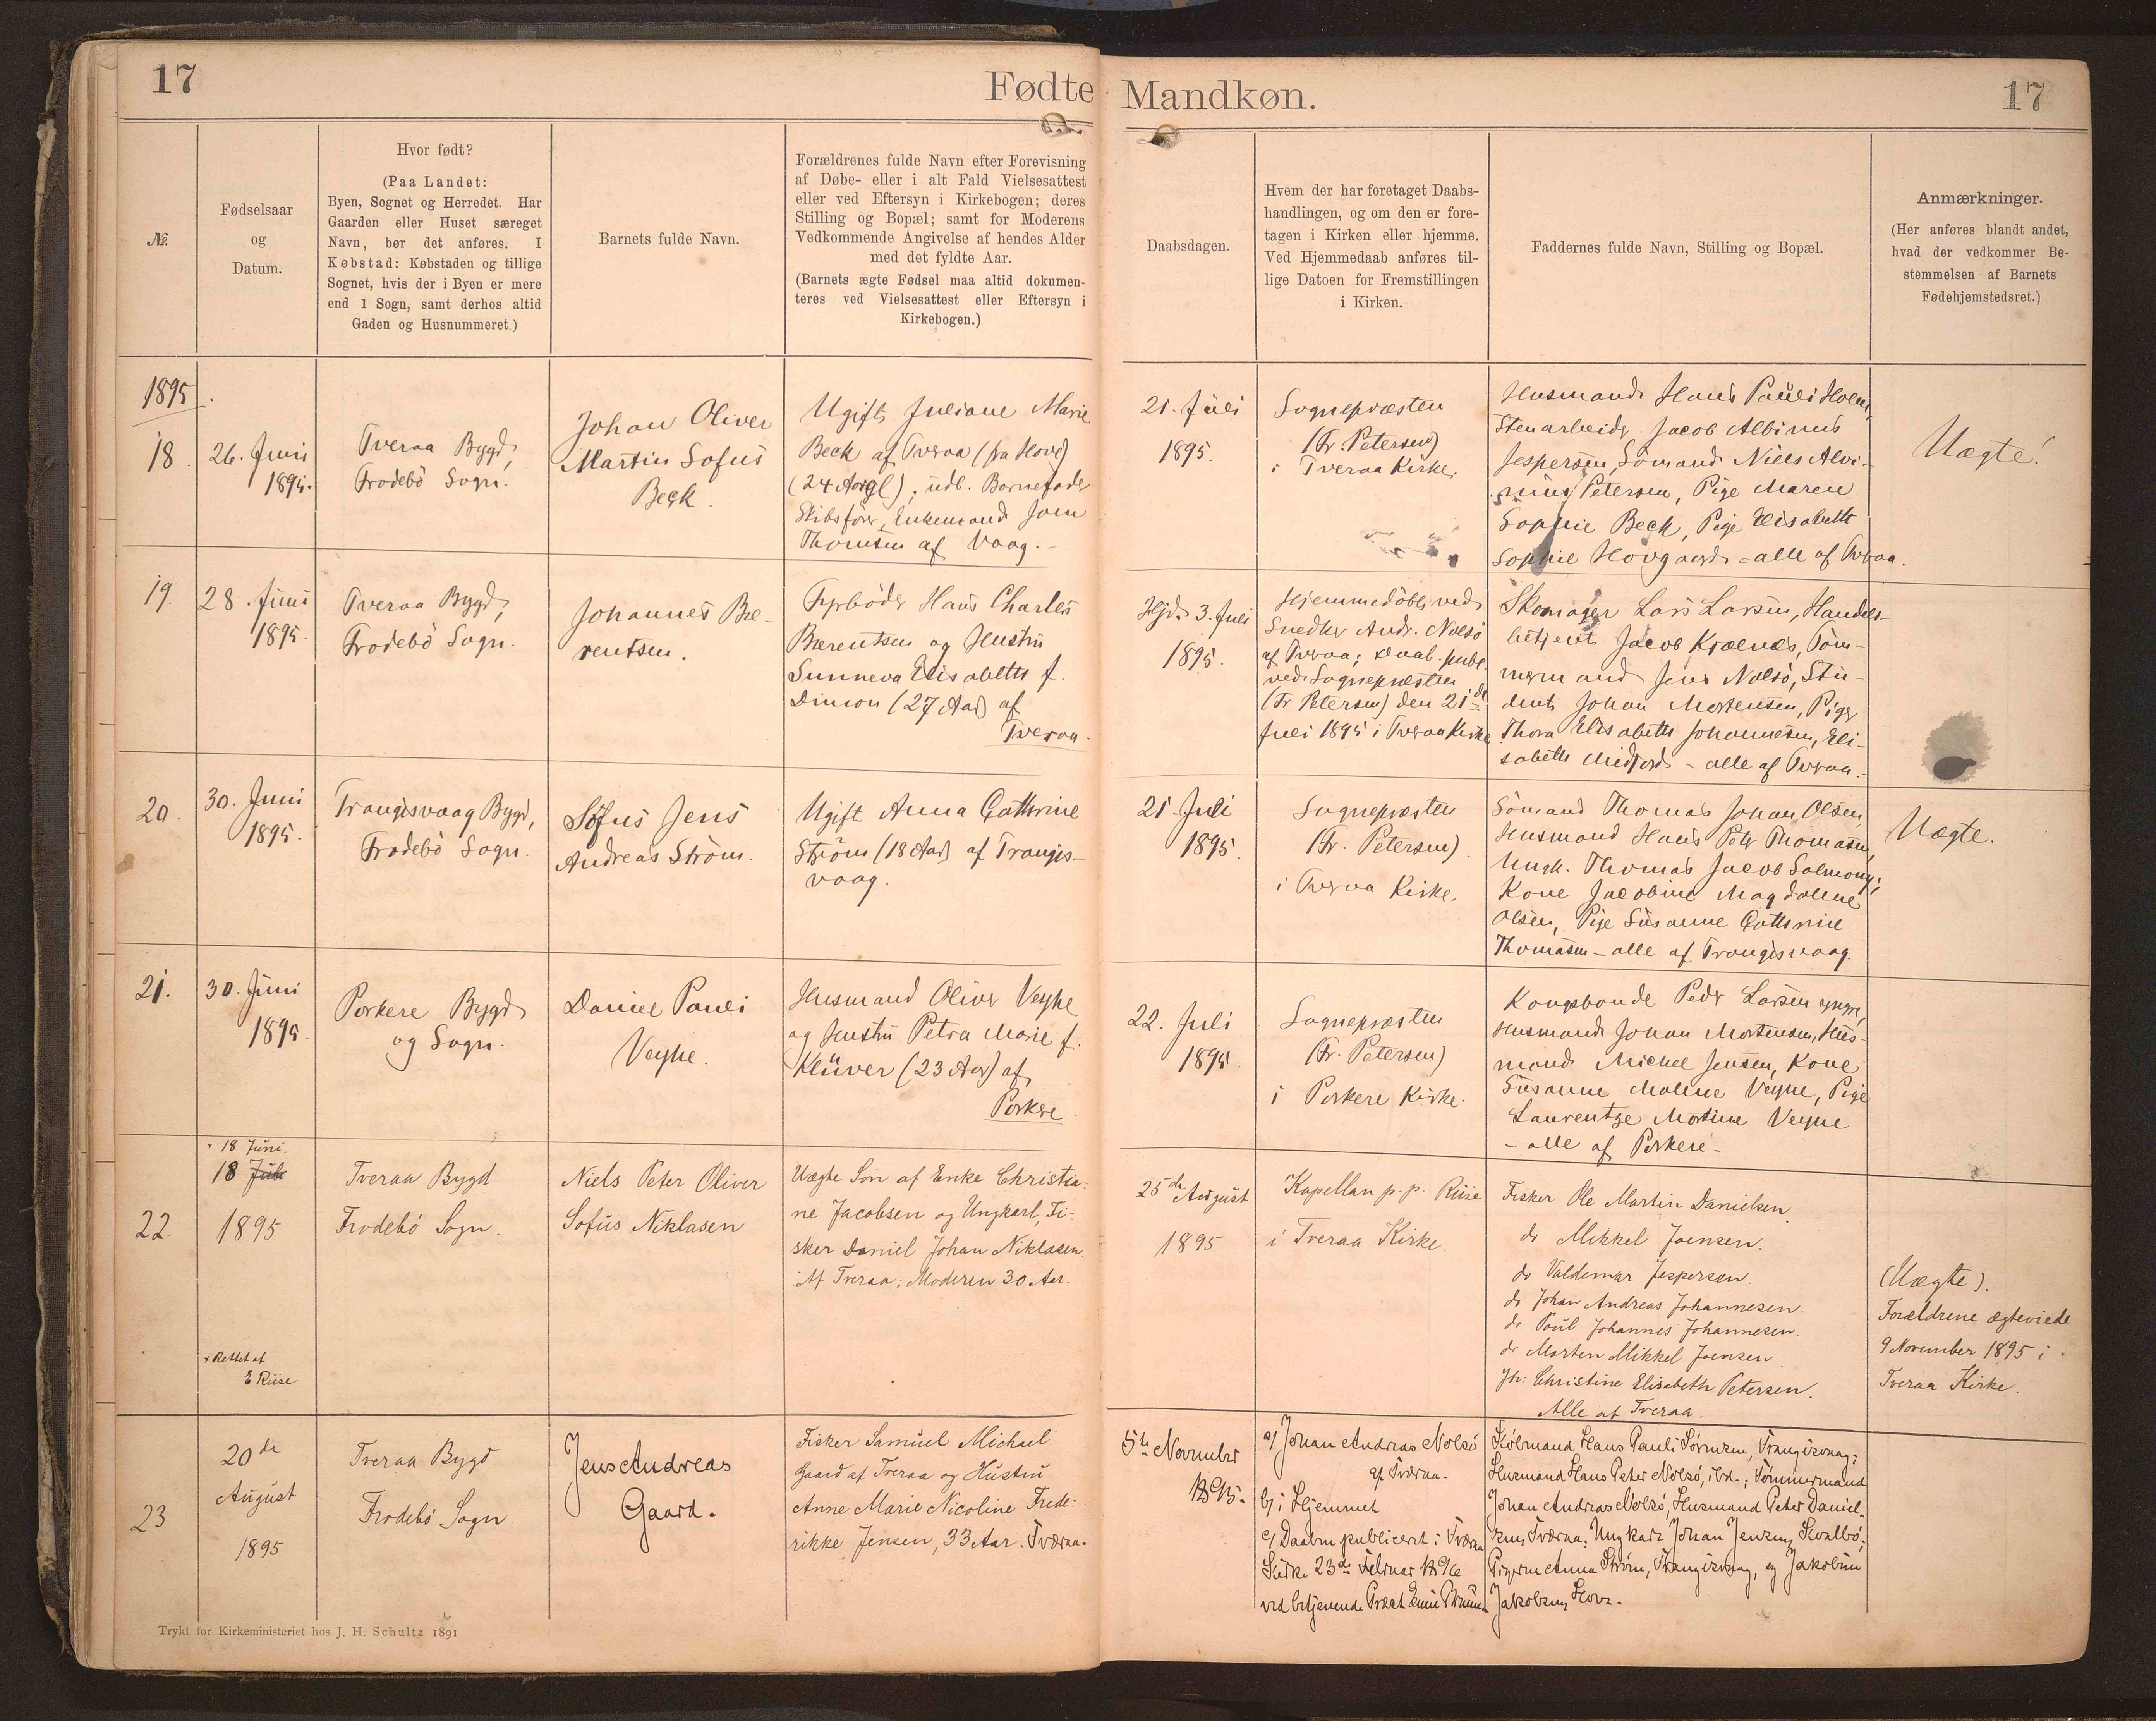 17
Fødte
Mandkøn.
17
№.
Fødselsaar
og
Datum.
Hvor født?
(Paa Landet:
Byen, Sognet og Herredet. Har
Gaarden eller Huset særeget
Navn, bør det anføres. I
Købstad: Købstaden og tillige
Sognet, hvis der i Byen er mere
end 1 Sogn, samt derhos altid
Gaden og Husnummeret.)
Barnets fulde Navn.
Forældrenes fulde Navn efter Forevisning
af Døbe- eller i alt Fald Vielsesattest
eller ved Eftersyn i Kirkebogen; deres
Stilling og Bopæl; samt for Moderens
Vedkommende Angivelse af hendes Alder
med det fyldte Aar.
(Barnets ægte Fødsel maa altid dokumen-
teres ved Vielsesattest eller Eftersyn i
Kirkebogen.)
Daabsdagen.
Hvem der har foretaget Daabs-
handlingen, og om den er fore-
tagen i Kirken eller hjemme.
Ved Hjemmedaab anføres til-
lige Datoen for Fremstillingen
i Kirken.
Faddernes fulde Navn, Stilling og Bopæl.
Anmærkninger.
(Her anføres blandt andet,
hvad der vedkommer Be-
stemmelsen af Barnets
Fødehjemstedsret.)
1895
18
26. Juni
1895.
Tveraa Bygd,
Frodebö Sogn.
Johan Oliver
Martin Sofus
Beck.
Ugift Juliane Marie
Beck af Tveraa (fra Hove)
(24 Aar gl); udl. Barnefader
Skibsfører, Enkemand Joen
Thomsen af Vaag.
21. Juli
1895.
Sognepræsten
(Fr. Petersen)
i Tveraa Kirke.
Husmand Hans Pauli Holm,
Stenarbeider Jacob Albinus
Jespersen, Sömand Niels Alvi-
nius Petersen, Pige Maren
Sophie Beck, Pige Elisabeth
Sophie Hovgaard - alle af Tveraa.
Uægte!
19.
28. Juni
1895.
Tveraa Bygd,
Frodebö Sogn.
Johannes Bæ-
rentsen.
Fyrböder Hans Charles
Bærentsen og Hustru
Sunneva Elisabeth f.
Dimon (27 Aar) af
Tveraa.
Hjd. 3. Juli
1895.
Hjemmedöbt ved
Snedker Andr. Nolsö
af Tveraa; Daab. publ.
ved Sognepræsten
(Fr Petersen) den 21de
Juli 1895 i Tveraa Kirke
Skomager Lars Larsen, Handels-
betjent Jacob Kjælnæs, Töm-
mermand Jens Nolsö, Stu-
dent Johan Mortensen, Piger
Thora Elisabeth Johannesen, Eli-
sabeth Midjord - alle af Tveraa.
20.
30. Juni
1895.
Trangisvaag Bygd,
Frodebö Sogn.
Sofus Jens
Andreas Ström.
Ugift Anna Cathrine
Ström (18 Aar) af Trangis-
vaag.
21. Juli
1895.
Sognepræsten
(Fr. Petersen)
i Tveraa Kirke.
Sömand Thomas Johan Olsen,
Husmand Hans Peter Thomasen,
Ungk. Thomas Jacob Salmony;
Kone Jacobine Magdalene
Olsen, Pige Susanne Cathrine
Thomasen - alle af Trangisvaag.
Uægte.
21.
30. Juni
1895.
Porkere Bygd
og Sogn.
Daniel Pauli
Veyhe.
Husmand Oliver Veyhe
og Hustru Petra Marie f.
Klüver (23 Aar) af
Porkere
22. Juli
1895.
Sognepræsten
(Fr. Petersen)
i Porkere Kirke.
Kongsbonde Peder Larsen yngre,
Husmand Johan Mortensen, Hus-
mand Michel Jensen, Kone
Susanne Malene Veyhe, Pige
Laurentze Martine Veyhe
- alle af Porkere -
22.
* 18 Juni.
18 Juli
1895
* Rettet af
E Riise
Tveraa Bygd
Frodebö Sogn.
Niels Peter Oliver
Sofus Niklasen
Uægte Sön af Enke Christia-
ne Jacobsen og Ungkarl, Fi-
sker Daniel Johan Niklasen.
Af Tveraa; Moderen 30 Aar.
25de August
1895
Kapellan p. p. Riise
i Tveraa Kirke.
Fisker Ole Martin Danielsen
do Mikkel Joensen.
do Valdemar Jespersen.
do Johan Andreas Johannesen.
do Poul Johannes Johannesen.
do Morten Mikkel Joensen.
Jfr. Christine Elisabeth Petersen.
Alle af Tveraa.
(Uægte).
Forældrene ægteviede
9 November 1895 i
Tveraa Kirke.
23
20de
August
1895
Tveraa Bygd
Frodebö Sogn.
Jens Andreas
Gaard.
Fisker Samuel Michael
Gaard af Tveraa og Hustru
Anne Marie Nicoline Frede-
rikke Jensen, 33 Aar. Tværaa.
5te November
1895.
a) Johan Andreas Nolsö
af Tværaa.
b) i Hjemmet
c) Daaben publiceret i Tværaa
Kirke 23de Februar 1896
ved betjenende Præst
Husmand Hans Peter Nolsö, ibd.; Tömmermand
Johan Andreas Nolsö, Husmand Peter Daniel-
sen, Tværaa; Ungkarl Johan Jensen, Kvalbö;
Pigerne Anna Ström, Trangisvaag, og Jakobine
Jakobsen, Hove.
Trykt for Kirkeministeriet hos J. H. Schultz 1891